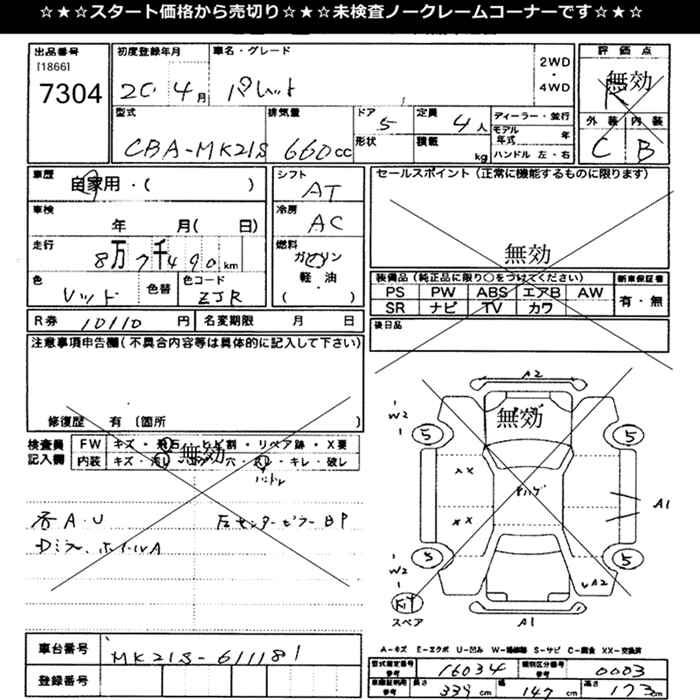 ☆★☆★スタート価格から売切り☆★☆★未検査ノークレームコーナーです☆★☆
出品番号
[1866]
7304
初度登録年月
20 4月
車名・グレード
パレット
2WD
・
4WD
評価点
無効
外装 内装
C B
型式
CBA-MK21S
排気量
660cc
ドア
5
形状
定員
4人
積載
kg
ディーラー・並行
モデル年式 年
ハンドル 左・右
車歴
自家用・( )
車検
年 月( 日)
走行
8万7千490km
色
レッド
色替
色コード
ZJR
シフト
AT
冷房
AC
燃料
ガソリン
軽・油
( )
セールスポイント (正常に機能するものに限ります)
無効
装備品 (純正品に限り○をつけてください)
PS PW ABS エアB AW
SR ナビ TV カワ
新車保証書
有・無
後日品
R券 10110円
名変期限 月 日
注意事項申告欄(不具合内容等は具体的に記入して下さい)
修復歴 有 (箇所 )
検査員記入欄
FW キズ・飛石・ヒビ割・リペア跡・X要
内装 キズ・汚レ・コゲ・穴・スレ・キレ・破レ
無効
ハンドル
左センターピラーBP
A2
無効
W2
5 5
XX
XX
A1
5 5
W2
A2
スペア
A1
車台番号
MK21S-611181
登録番号
A-キズ E-エクボ U-凹み W-補修跡 S-サビ C-腐食 XX-交換済
型式指定番号
参考
16034
類別区分番号
参考
0003
車庫証明用
参考
長さ
339cm
幅
147cm
高さ
173cm